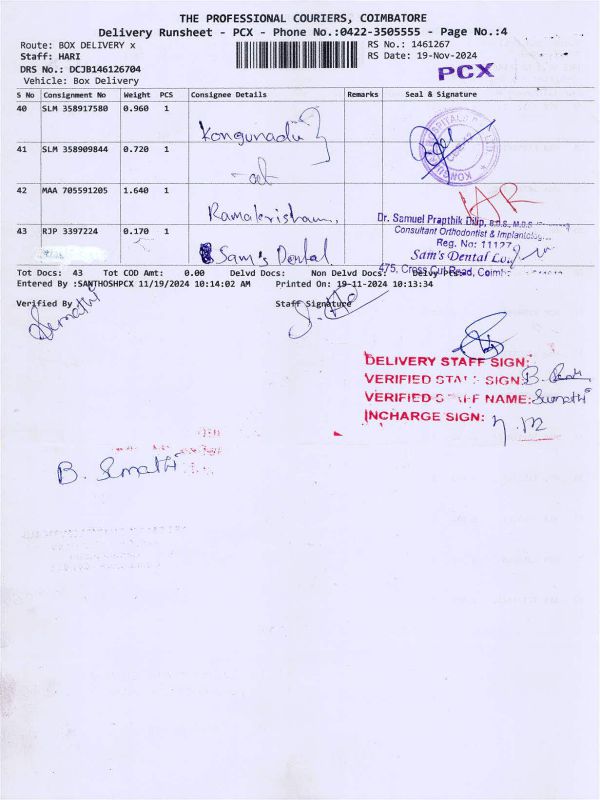 THE PROFESSIONAL COURIERS, COIMBATORE
Delivery Runsheet - PCX - Phone No.:0422-3505555 - Page No.:4
Route: BOX DELIVERY x
RS No.: 1461267
Staff: HARI
RS Date: 19-Nov-2024
DRS No.: DCJB146126704
PCX
Vehicle: Box Delivery
S No Consignment No Weight PCS Consignee Details Remarks Seal & Signature
40 SLM 358917580 0.960 1 Kongunadu
41 SLM 358909844 0.720 1
42 MAA 705591205 1.640 1 Ramakrishnan,
43 RJP 3397224 0.170 1 Sam's Dental
Dr. Samuel Prapthik Dilip, B.D.S., M.D.S
Consultant Orthodontist & Implantolog
Reg. No: 11127
Sam's Dental
475, Cross Cut Road, Coimb
Tot Docs: 43 Tot COD Amt: 0.00 Delvd Docs: Non Delvd Docs:
Entered By :SANTHOSHPCX 11/19/2024 10:14:02 AM Printed On: 19-11-2024 10:13:34
Verified By
Staff Signature
Sumathi
DELIVERY STAFF SIGN:
VERIFIED STAFF SIGN:
VERIFIED STAFF NAME: Sumathi
INCHARGE SIGN:
B. Sumathi